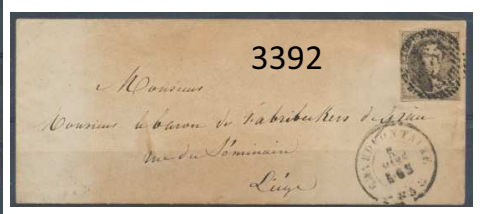 3392
Monsieur
Monsieur le baron de Fabribeckers de
rue du Séminaire
Liège